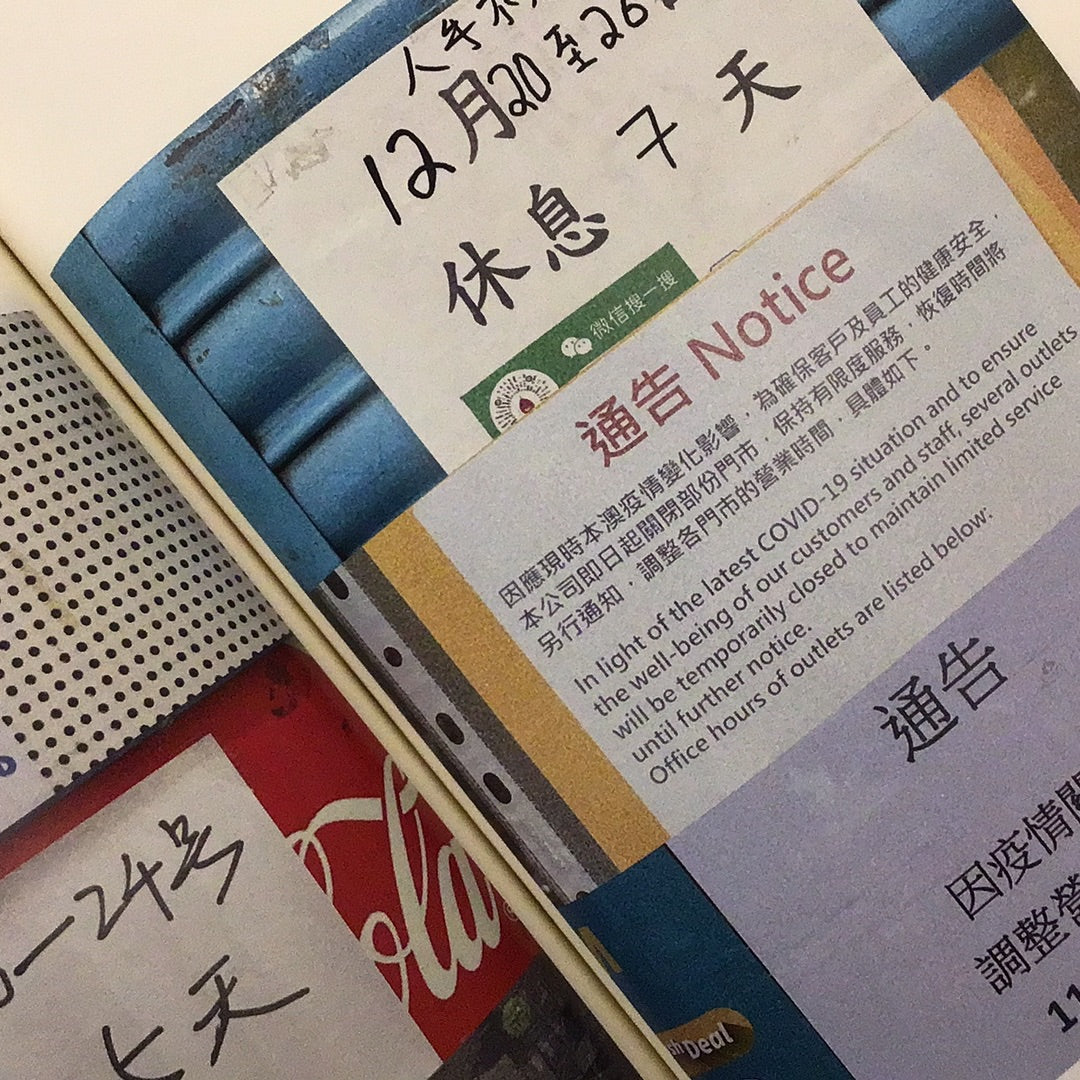 人手不
12月20至26
休息 7 天
微信搜一搜
通告 Notice
因應現時本澳疫情變化影響，為確保客戶及員工的健康安全，
本公司即日起關閉部份門市，保持有限度服務，恢復時間將
另行通知，調整各門市的營業時間，具體如下。
In light of the latest COVID-19 situation and to ensure
the well-being of our customers and staff, several outlets
will be temporarily closed to maintain limited service
until further notice.
Office hours of outlets are listed below:
通告
因疫情關
調整營
11
Deal
Cola
-24号
七天